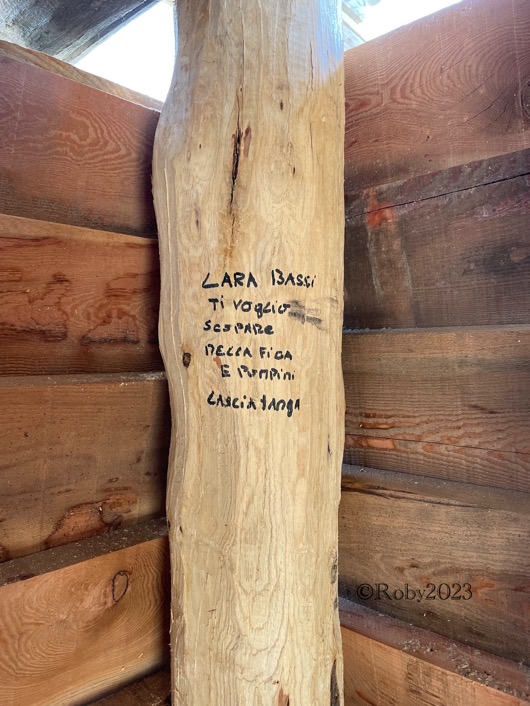 LARA BASSI
TI VOGLIO
SCOPARE
NELLA FIGA
E POMPINI
LASCIA TANGA
©Roby2023